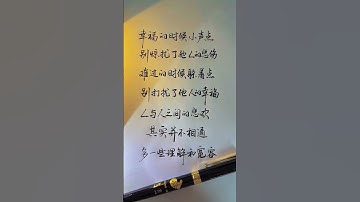 幸福的时候小声点
别惊扰了他人的悲伤
难过的时候躲着点
别打扰了他人的幸福
人与人之间的悲欢
其实并不相通
多一些理解和宽容